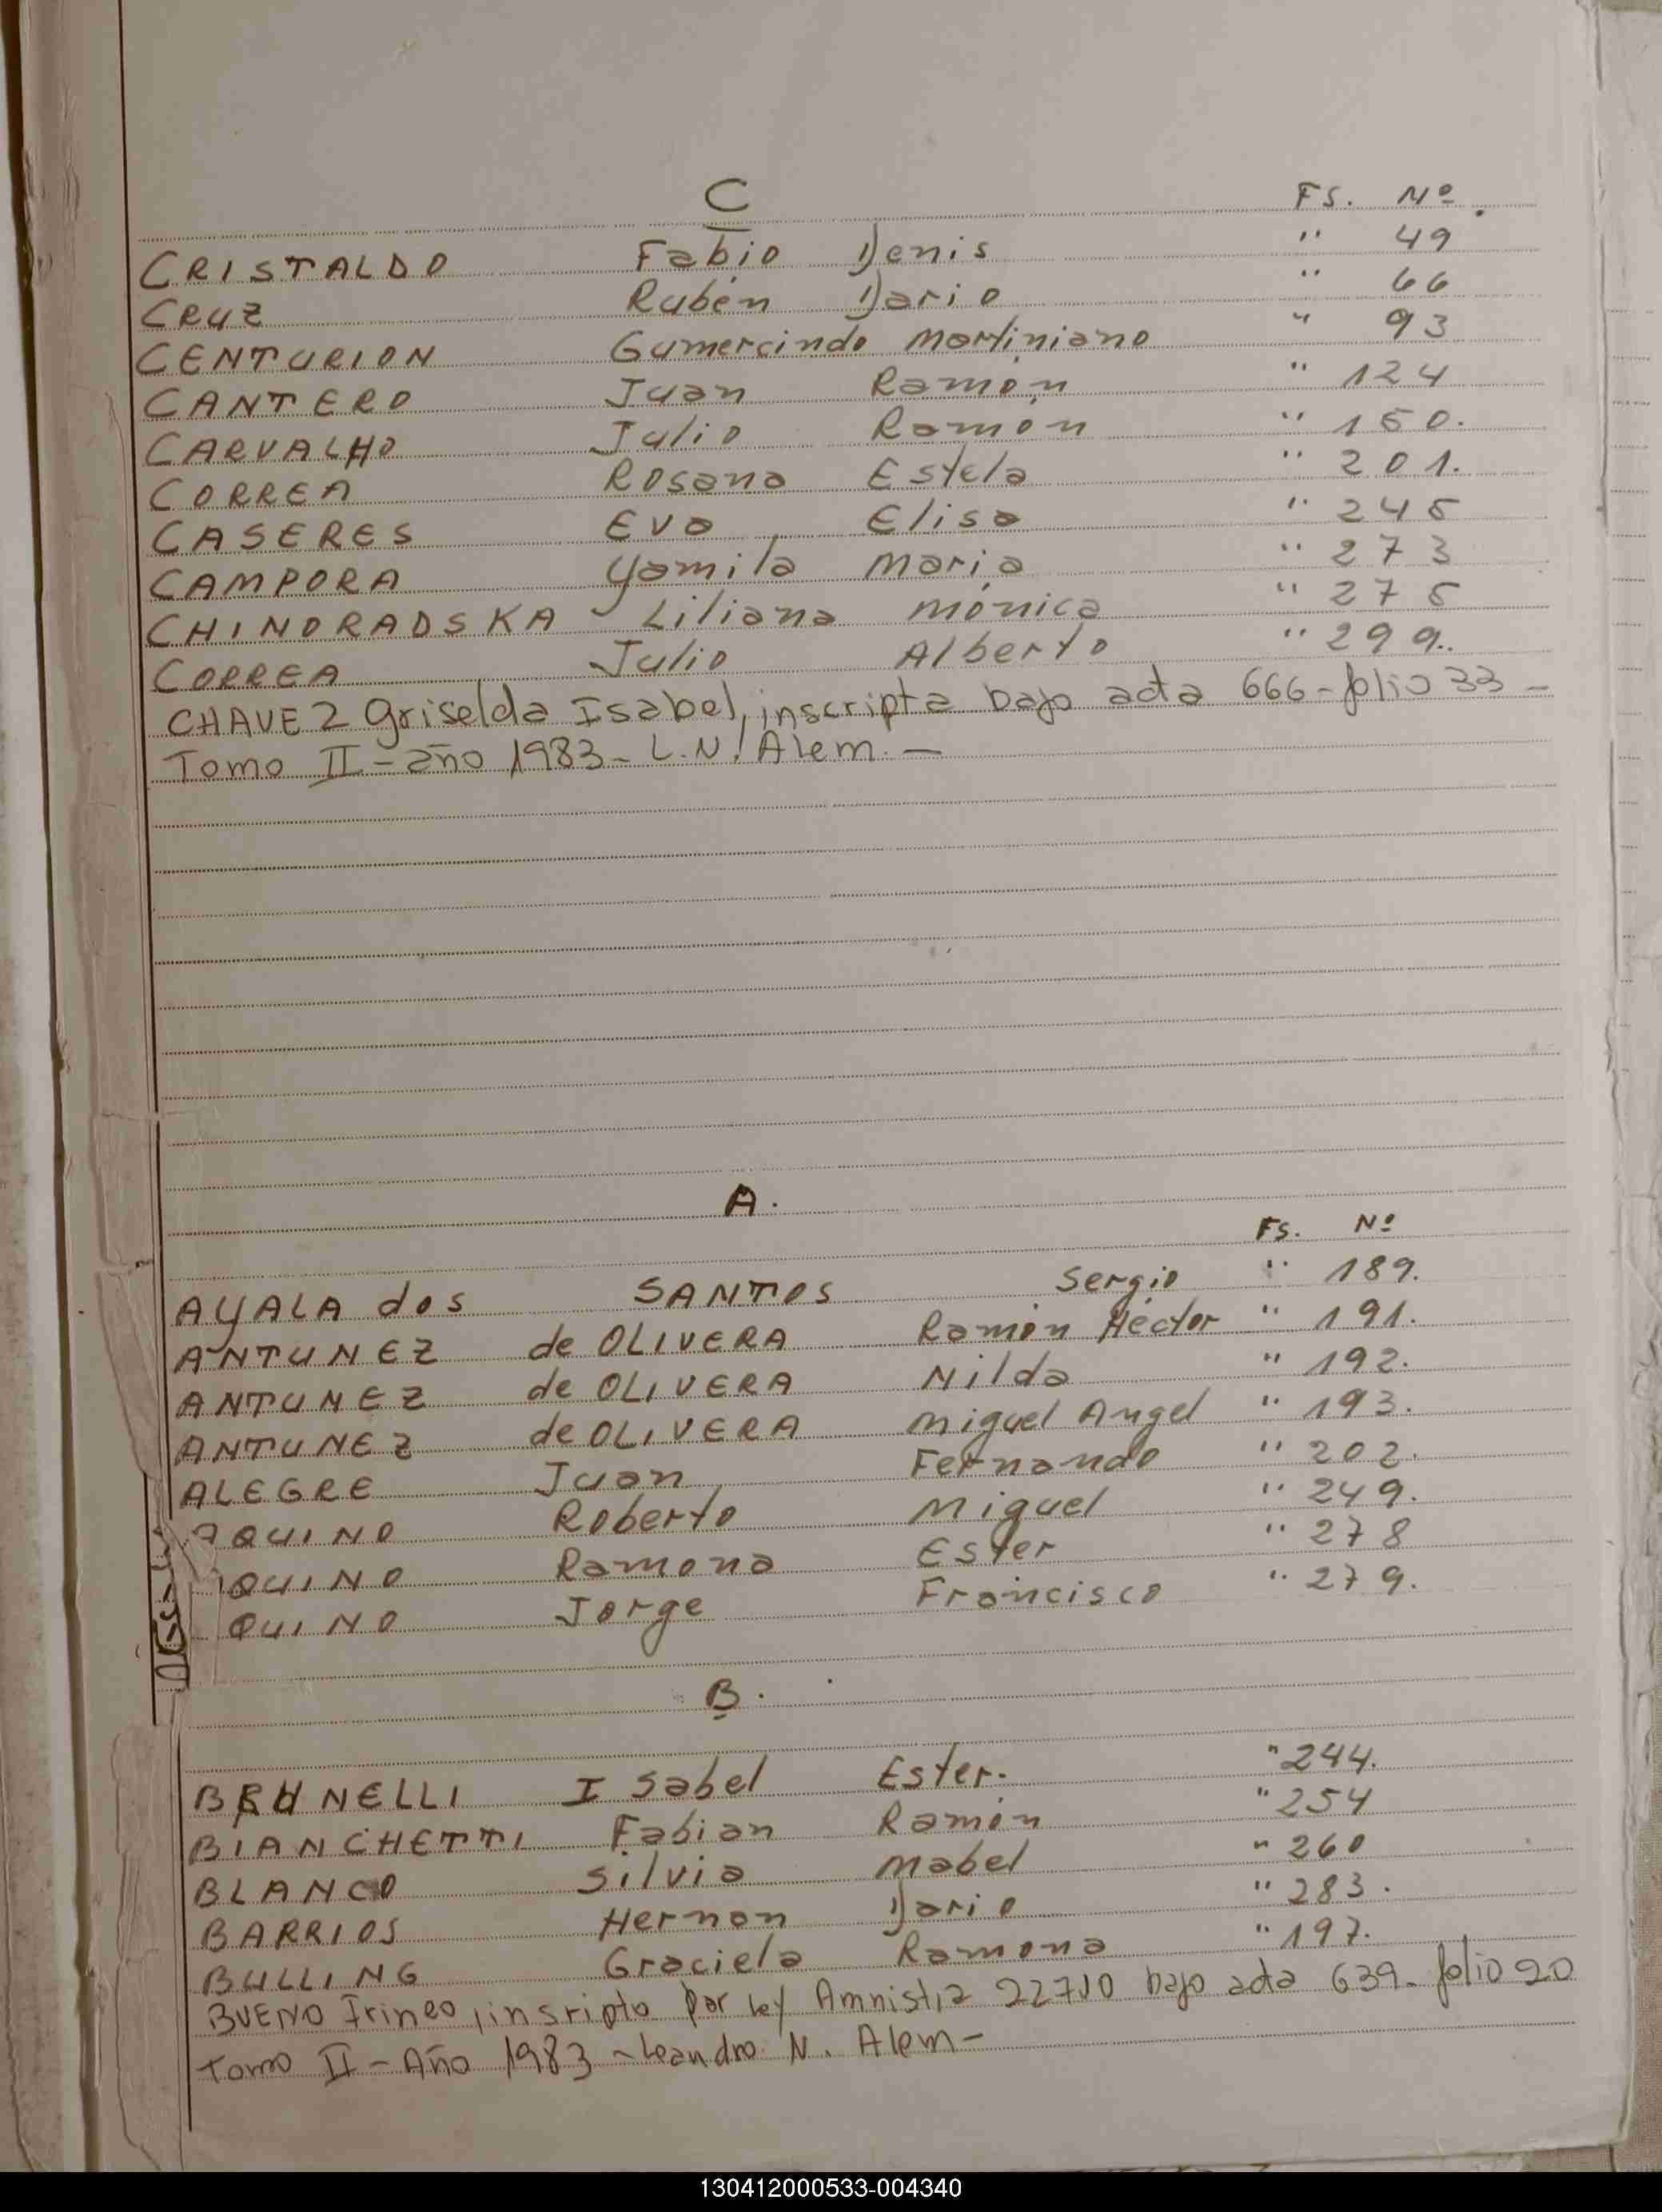 C
FS. Nº.
CRISTALDO Fabio Denis " 49
CRUZ Rubén Dario " 66
CENTURION Gumercindo Martiniano " 93
CANTERO Juan Ramón " 124
CARVALHO Julio Ramón " 150.
CORREA Rosana Estela " 201.
CASERES Eva Elisa " 245
CAMPORA Yamila Maria " 273
CHINORADSKA Liliana Mónica " 275
CORREA Julio Alberto " 299.
CHAVEZ Griselda Isabel, inscripta bajo acta 666-folio 33-
Tomo II - año 1983 - L.N. Alem. -
A.
FS. Nº
AYALA dos SANTOS Sergio " 189.
ANTUNEZ de OLIVERA Ramón Héctor " 191.
ANTUNEZ de OLIVERA Nilda " 192.
ANTUNEZ de OLIVERA Miguel Angel " 193.
ALEGRE Juan Fernando " 202.
AQUINO Roberto Miguel " 249.
QUINO Ramona Ester " 278
QUINO Jorge Francisco " 279.
B.
BRUNELLI Isabel Ester. " 244.
BIANCHETTI Fabian Ramón " 254
BLANCO Silvia Mabel " 260
BARRIOS Hernan Dario " 283.
BULLING Graciela Ramona " 197.
BUENO Irineo, insripto por ley Amnistia 22710 bajo acta 639- folio 20
Tomo II - Año 1983 - Leandro N. Alem -
130412000533-004340